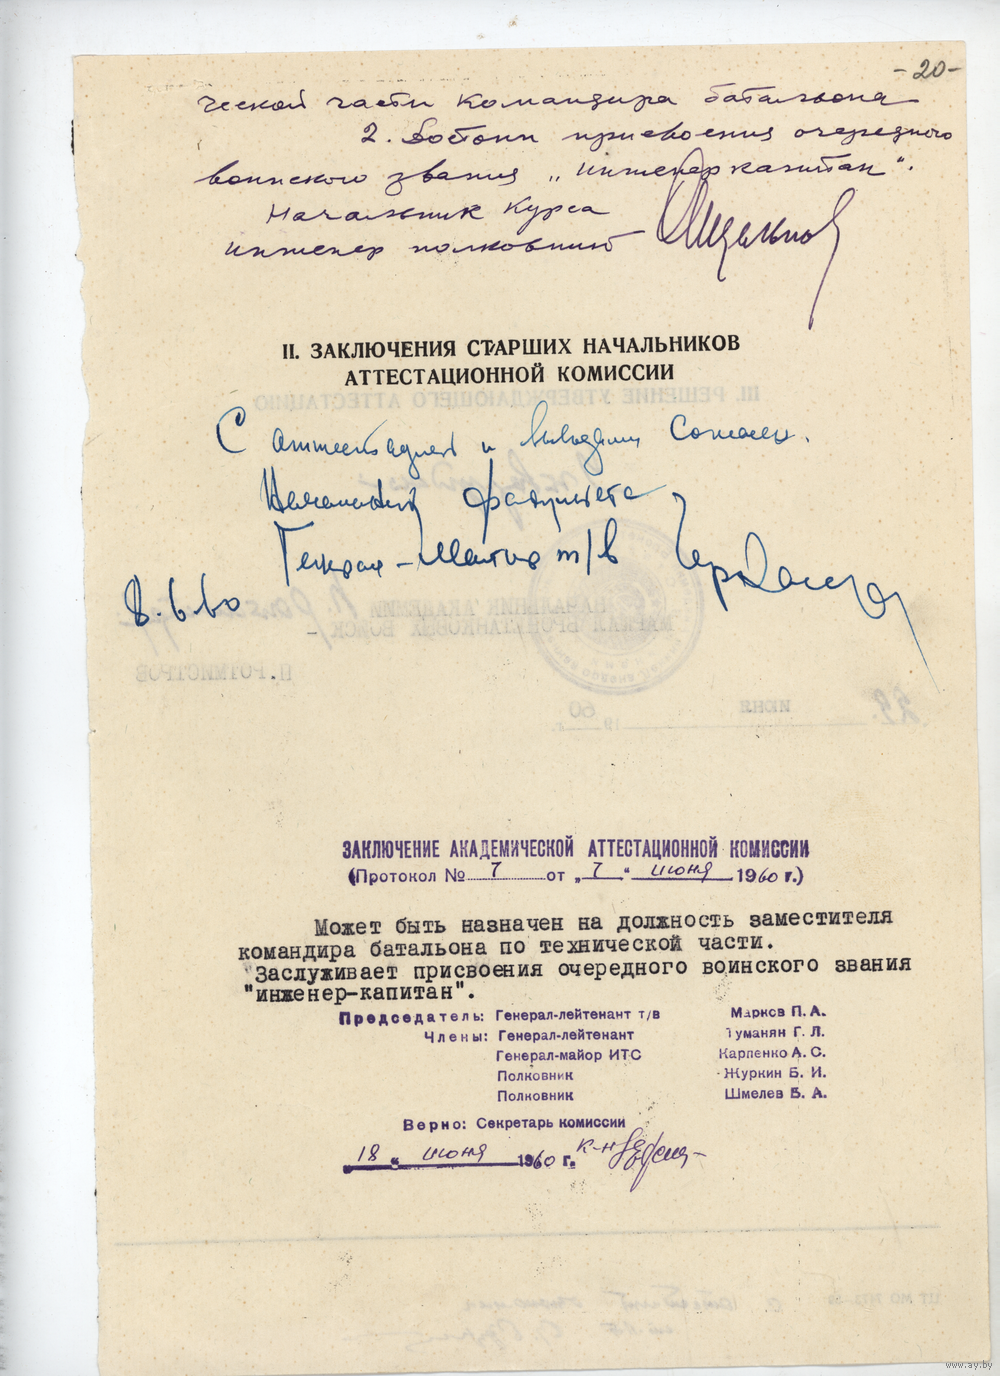 -20-
ческой части командира батальона
2. Достоин присвоения очередного
воинского звания „инженер капитан“.
Начальник курса
инженер полковник
II. ЗАКЛЮЧЕНИЯ СТАРШИХ НАЧАЛЬНИКОВ
АТТЕСТАЦИОННОЙ КОМИССИИ
С аттестацией и выводами согласен.
Начальник факультета
Генерал-майор т/в
8.6.60
III. РЕШЕНИЕ УТВЕРЖДАЮЩЕГО АТТЕСТАЦИЮ
НАЧАЛЬНИК АКАДЕМИИ
МАРШАЛ БРОНЕТАНКОВЫХ ВОЙСК -
П. РОТМИСТРОВ
29. июня 1960 г.
ЗАКЛЮЧЕНИЕ АКАДЕМИЧЕСКОЙ АТТЕСТАЦИОННОЙ КОМИССИИ
(Протокол № 7 от „7“ июня 1960 г.)
Может быть назначен на должность заместителя
командира батальона по технической части.
Заслуживает присвоения очередного воинского звания
"инженер-капитан".
Председатель: Генерал-лейтенант т/в Марков П. А.
Члены: Генерал-лейтенант Туманян Г. Л.
Генерал-майор ИТС Карпенко А. С.
Полковник Журкин Б. И.
Полковник Шмелев Б. А.
Верно: Секретарь комиссии
„18“ июня 1960 г. к-н
www.ay.by